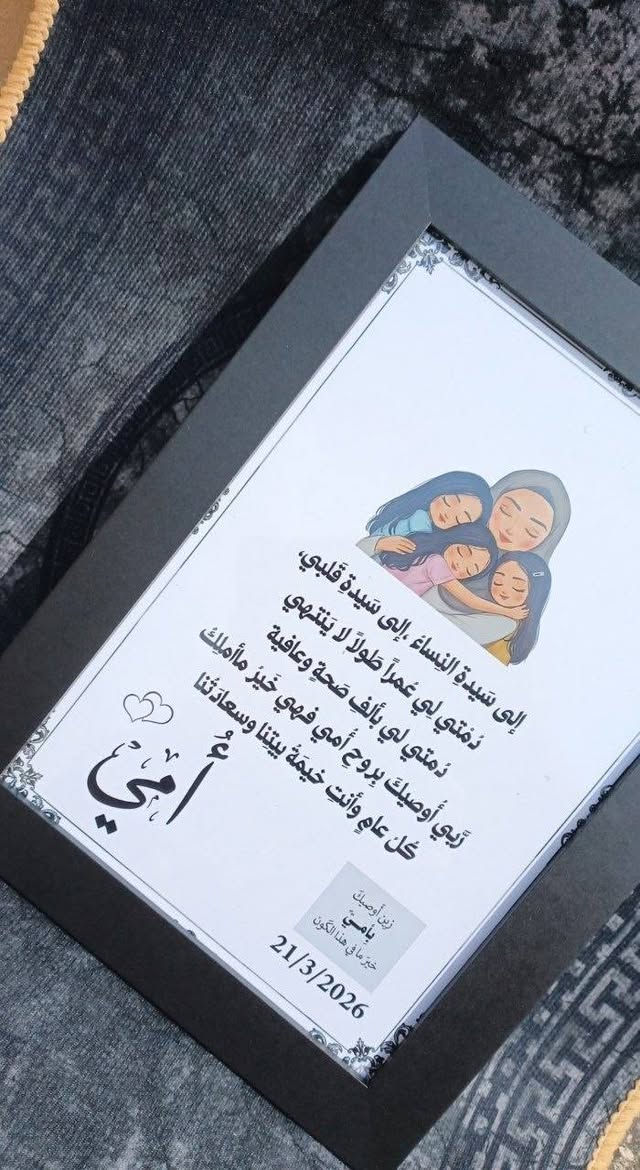 إلى سَيدةِ النساءَ ،إلى سَيدةِ قَلبي،
دُمْتي لِي عُمراً طَولاً لا يَنتهي
دُمتي لي بألفِ صَحةٍ وعافية
رَّبي أُوصيكَ بِروحِ أُمي فهي خَيرُ ماأملِكُ
كُلَ عامٍ وأنتِ خَيمَةُ بيتِنا وسعادَتُنا
أُمي
زبن أوصيكَ
بأُمـيّ
خيرَ ما في هَذا الكَون
21/3/2026